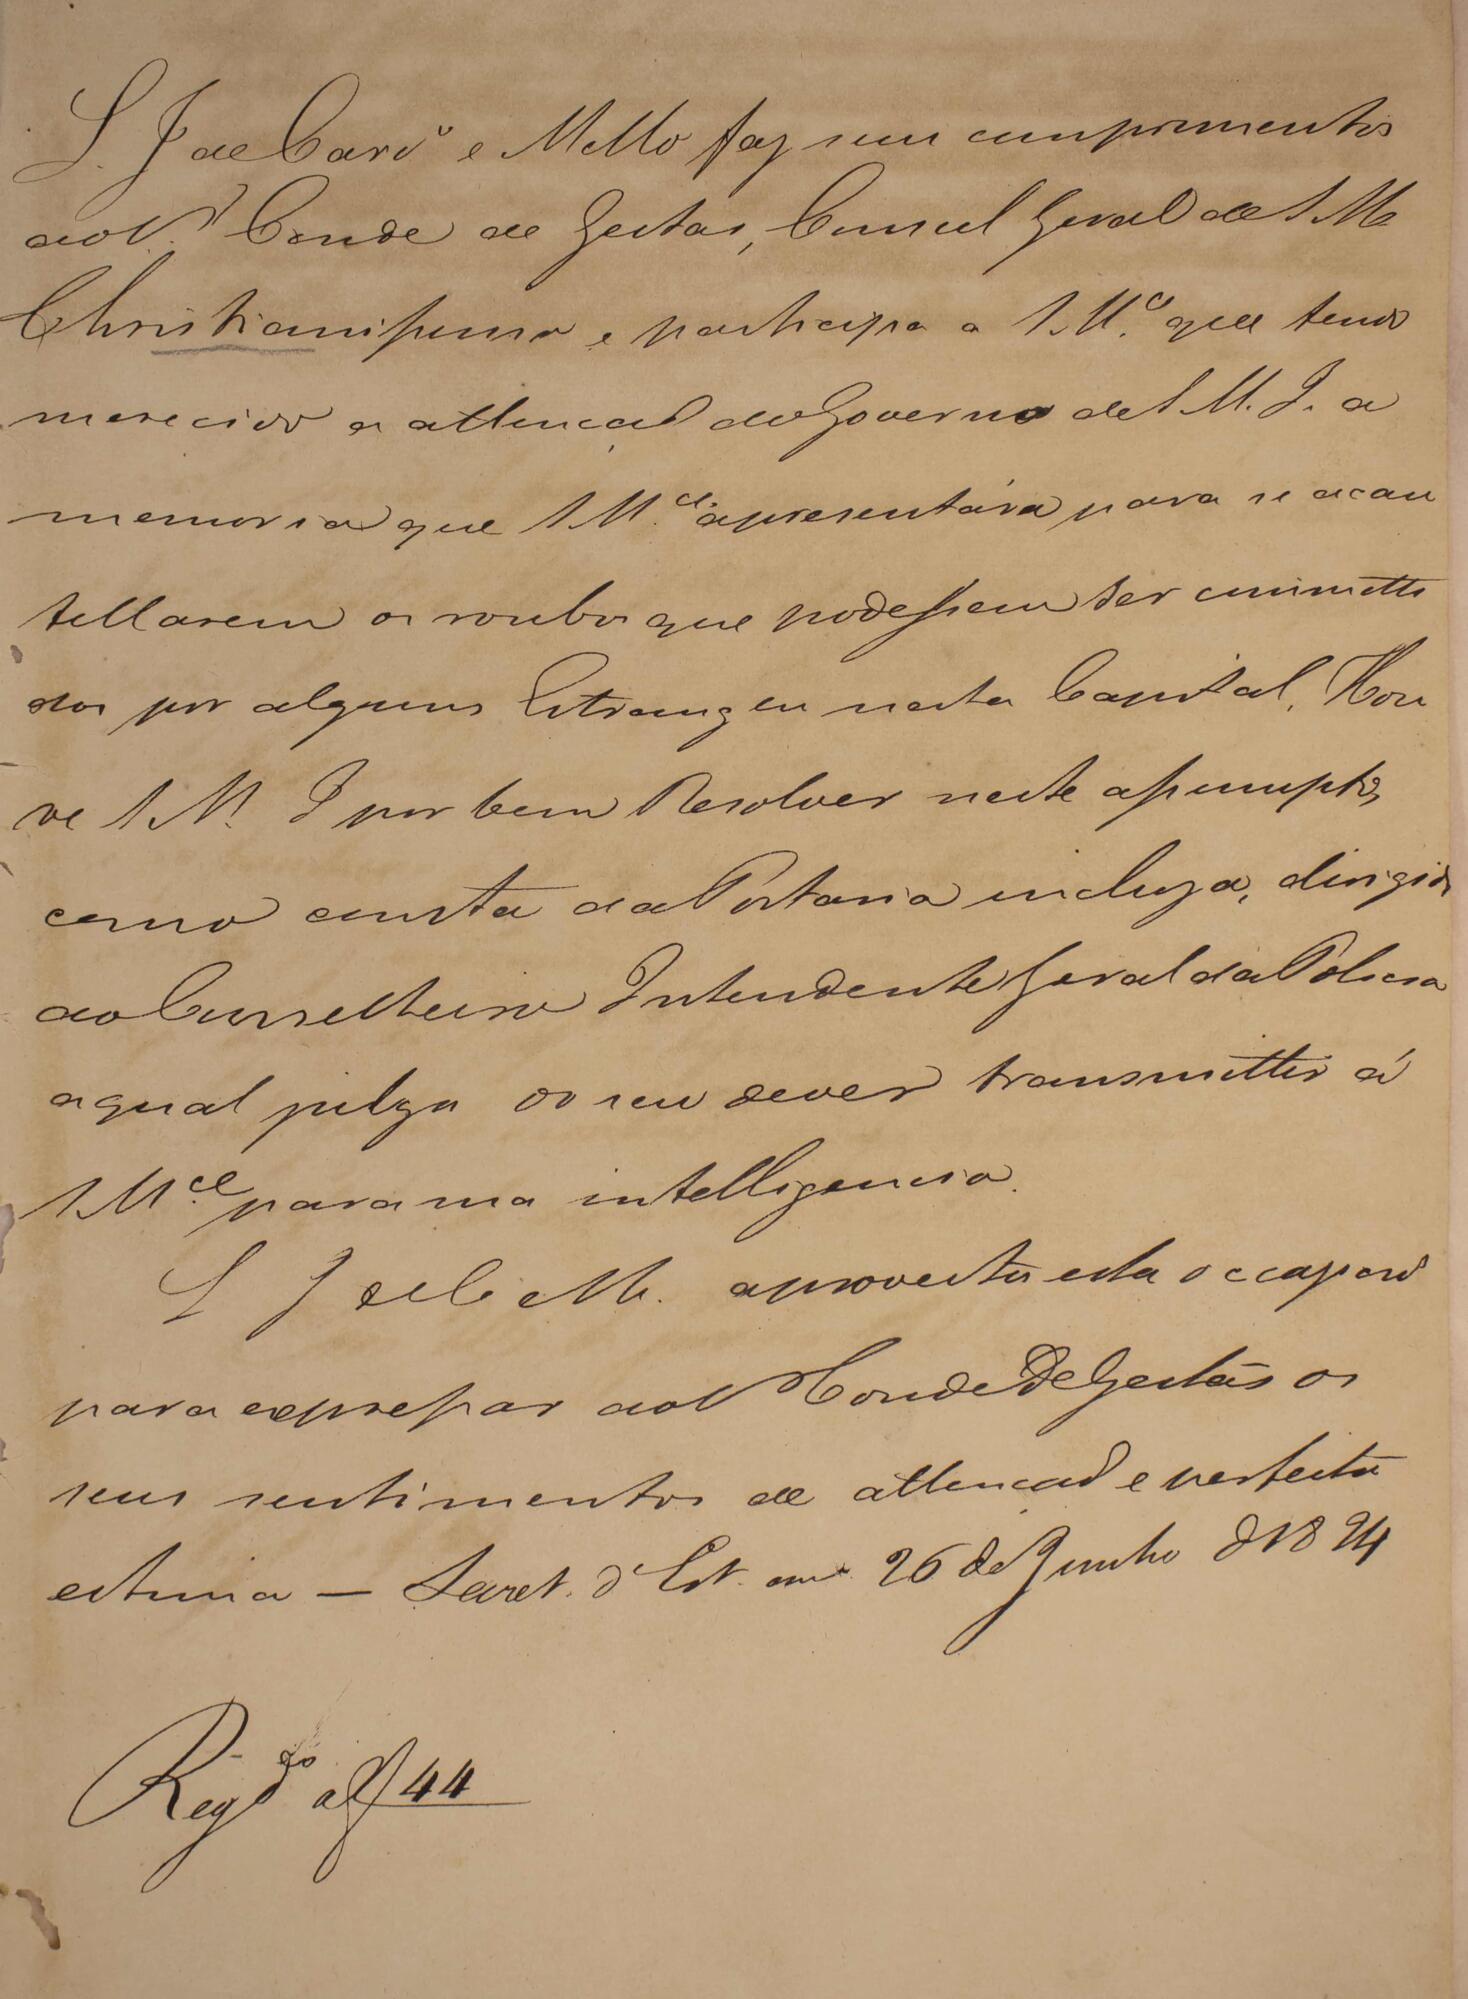 L. J de Carv.o e Mello faz seus cumprimentos
ao S.r Conde de Gestas, Consul Geral de S M
Christianissima e participa a S M.ce que tendo
merecido a attencaõ do Governo de S M. I. a
memoria que S M.ce apresentára para se acau
tellarem os roubos que podessem ser commetti
dos por alguns Estrangeiros nesta Capital, Hou
ve S M. I por bem Resolver neste assumpto,
como consta da Portaria incluza, dirigida
ao Conselheiro Intendente Geral da Policia
a qual julga do seu dever transmittir á
S M.ce para sua intelligencia.
L J de C e M. aproveita esta occasiaõ
para expressar ao S.r Conde De Gestas os
seus sentimentos de attencaõ e perfeita
estima — Secret. d'Est. em 26 de Junho d 1824
Reg.do a f 44